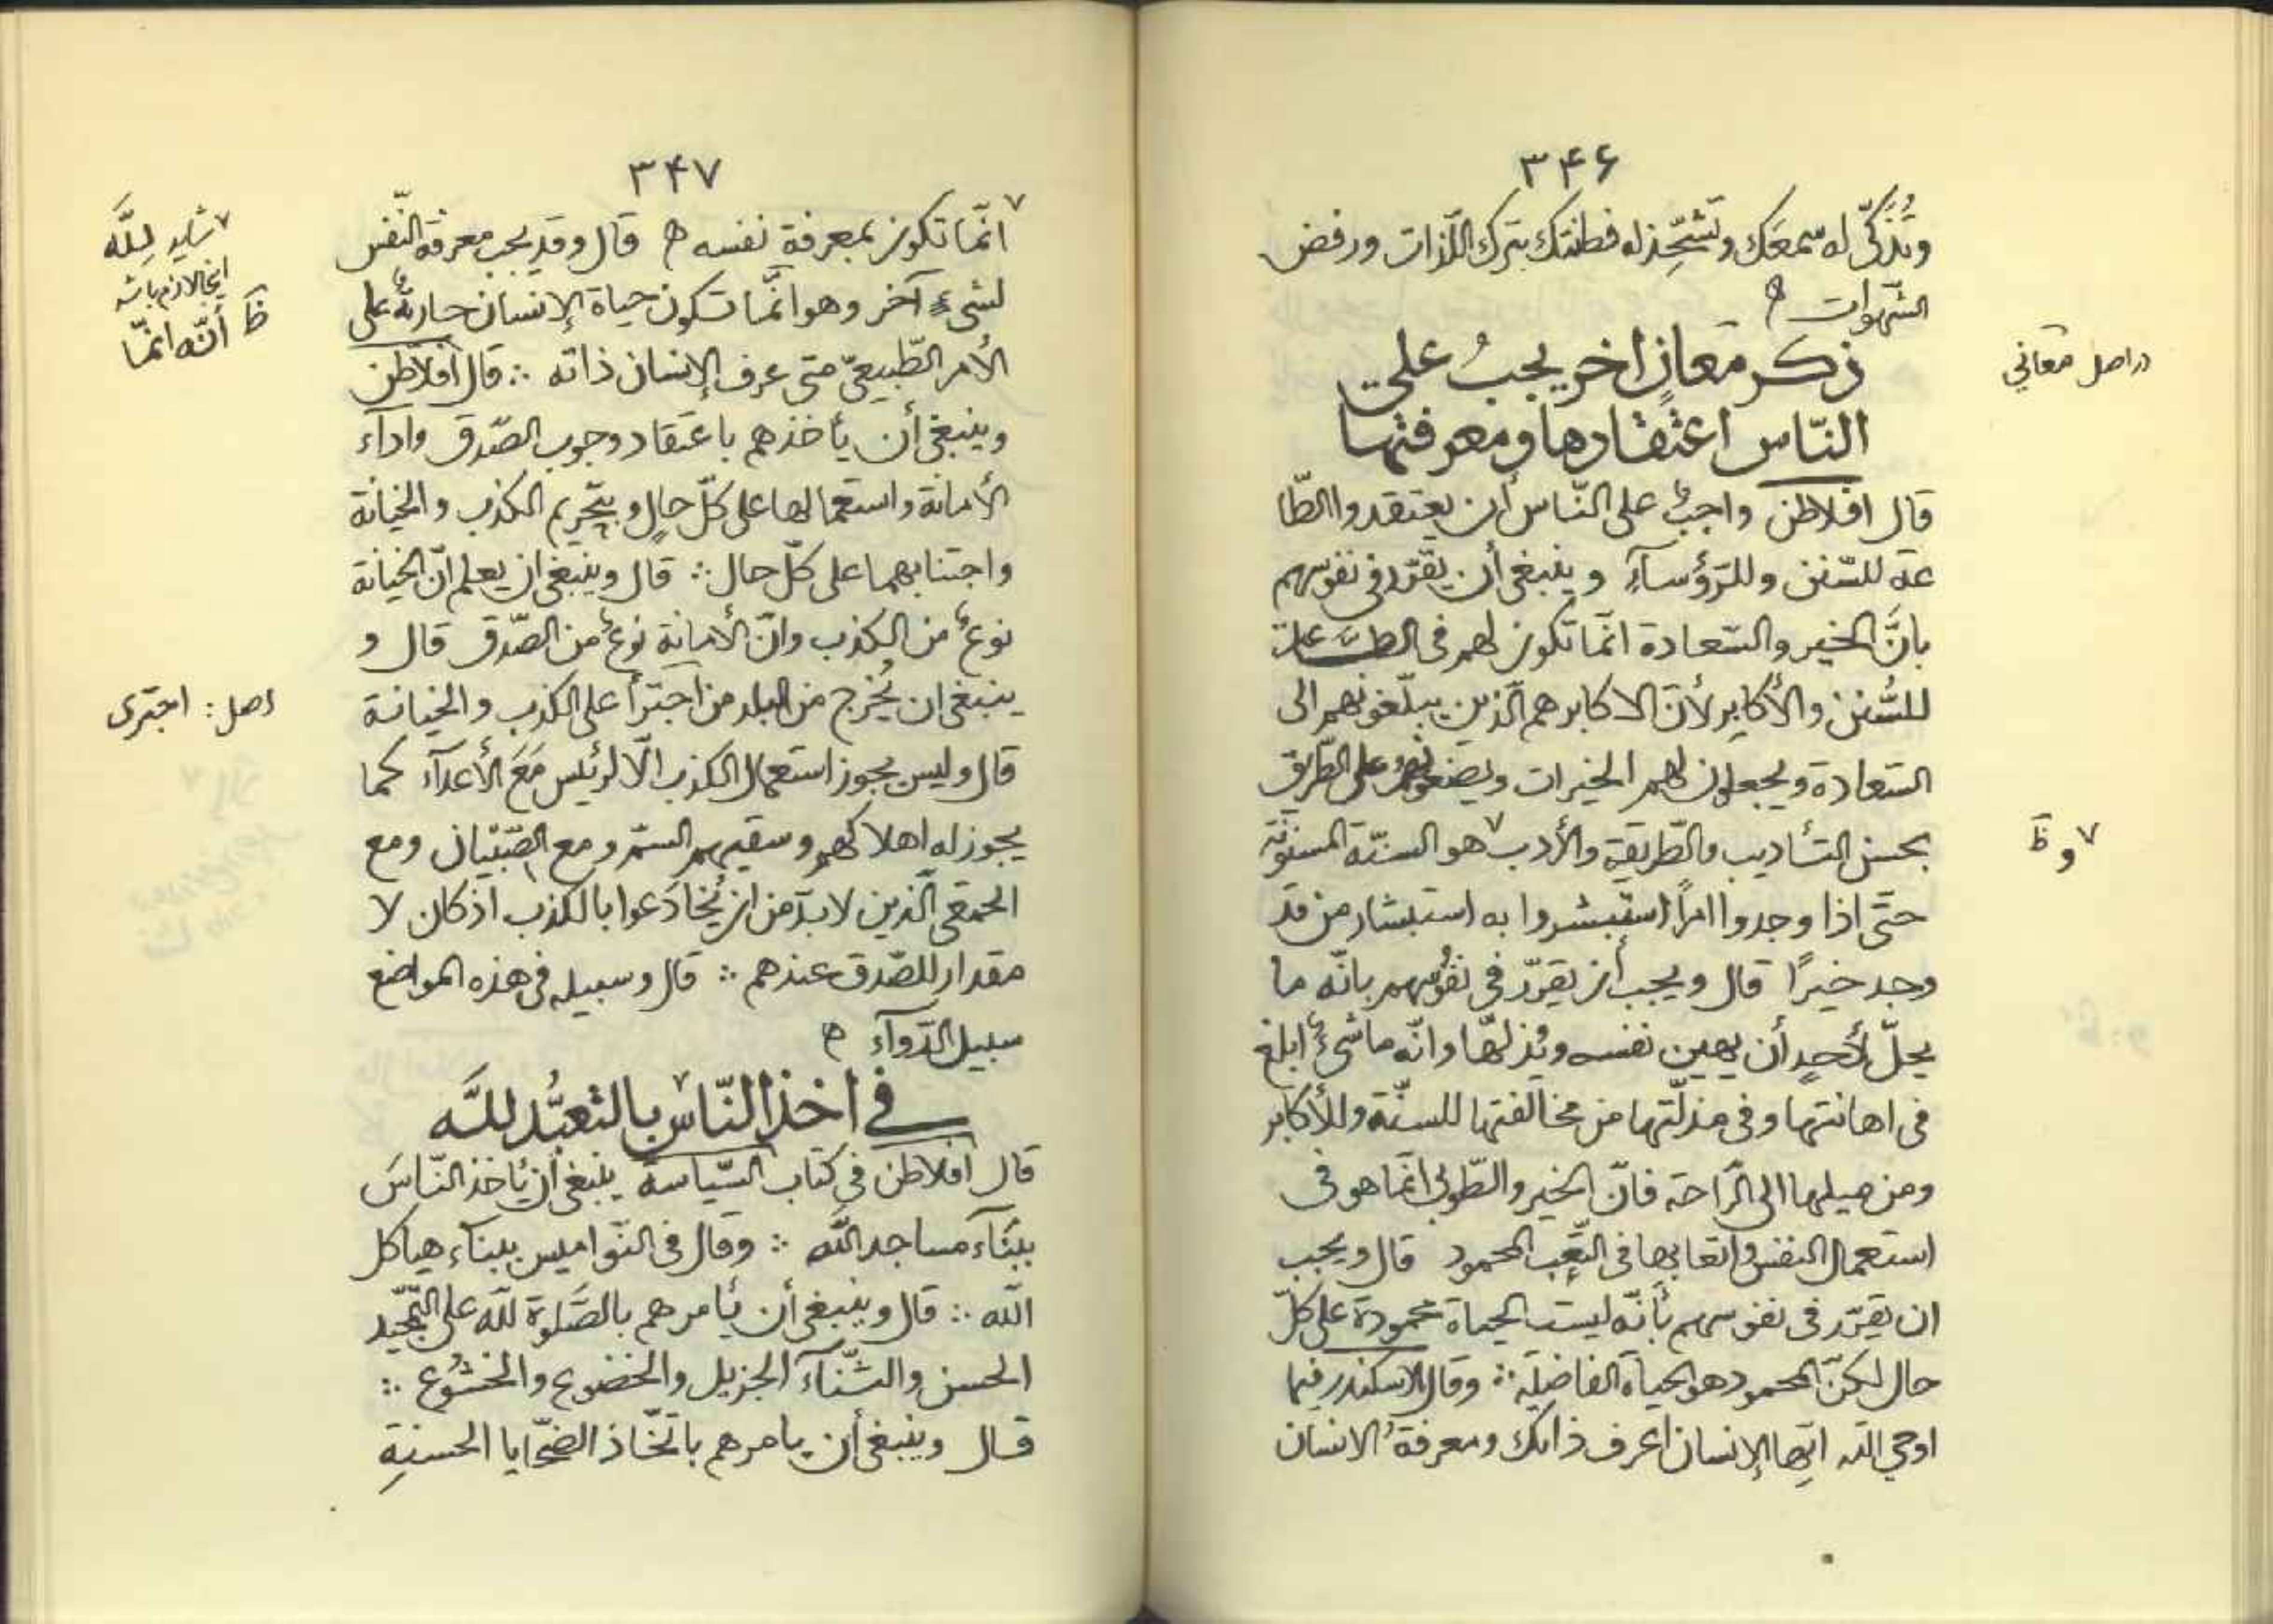 ۳۴۶
وتُذَكّى له سمعَك وتَشْحِذ له فطنتك بترك اللّذات ورفض
الشّهوات
ذكر معانٍ اخر يجبُ على
النّاس اعتقادها ومعرفتها
قال افلاطن واجبٌ على النّاس أن يعتقدوا الطّا
عة للسّنن وللرّؤسآء وينبغى أن يقرّر فى نفوسهم
بانّ الخير والسّعادة انّما تكون لهم فى الطّاعات
للسُّنن والأكابر لأنّ الاكابر هم الّذين يبلّغونهم الى
السّعادة ويجعلون لهم الخيرات ويضعونهم على الطّريق
بحسن التّأديب والطّريقة والأدب ۷ هو السنّة المسنونة
حتّى اذا وجدوا امرًا استبشروا به استبشار من قد
وجد خيرًا قال ويجب أن يقرّر فى نفُوسهم بانّه ما
يحلّ لأحدٍ أن يهين نفسه ويُذلّها وانّه ما شىءٌ ابلغ
فى اهانتها وفى مذلّتها من مخالفتها للسنّة وللأكابر
ومن ميلها الى الرّاحة فانّ الخير والطّوبى انّما هو فى
استعمال النفس واتعابها فى التّعب المحمود قال ويجب
ان يقرّر فى نفوسهم بأنّه ليست الحياة محمودة على كلّ
حال لكنّ المحمود هو الحياة الفاضلة ∴ وقال الاسكندر فيما
اوحى اللّه ايّها الإنسان اعرف ذاتك ومعرفةُ الانسان
دراصل معاني
۷ و ظ
۳۴۷
۷ انّما تكون بمعرفة نفسه قال وقد يجب معرفة النّفس
لشىءٍ آخر وهو انّما تكون حياة الإنسان جاريةٌ على
الأمر الطّبيعىّ متى عرف الإنسان ذاته ∴ قال افلاطن
وينبغى أن يأخذهم باعتقاد وجوب الصّدق واداء
الأمانة واستعمالها على كلّ حالٍ وبتحريم الكذب والخيانة
واجتنابهما على كلّ حال ∴ قال وينبغى ان يعلم انّ الخيانة
نوعٌ من الكذب وانّ الأمانة نوعٌ من الصّدق قال و
ينبغى ان يُخرج من البلد من اجترأ على الكذب والخيانة
قال وليس يجوز استعمال الكذب الّا لرئيس مَعَ الأعدآء كما
يجوز له اهلاكهم وسقيهم السّمّ ومع الصّبيان ومع
الحمقى الّذين لا بدّ من ان يُخادَعوا بالكذب اذ كان لا
مقدار للصّدق عندهم ∴ قال وسبيله فى هذه المواضع
سبيل الدّوآء
فى اخذ النّاس ۷ بالتعبُّد للّه
قال افلاطن فى كتاب السّياسة ينبغى ان يُأخذ النّاسَ
ببنآء مساجد اللّه ∴ وقال فى النّواميس ببناء هياكل
اللّه ∴ قال وينبغى أن يُأمرهم بالصَّلوة للّه على التّمجيد
الحسن والثّنآء الجزيل والخضوع والخشُوع ∴
قال وينبغى أن يامرهم باتّخاذ الضّحايا الحسنةِ
۷ شايد لِلَّه
اينجا لازم باشد
ظ أنّه انّما
اصل: اجترى